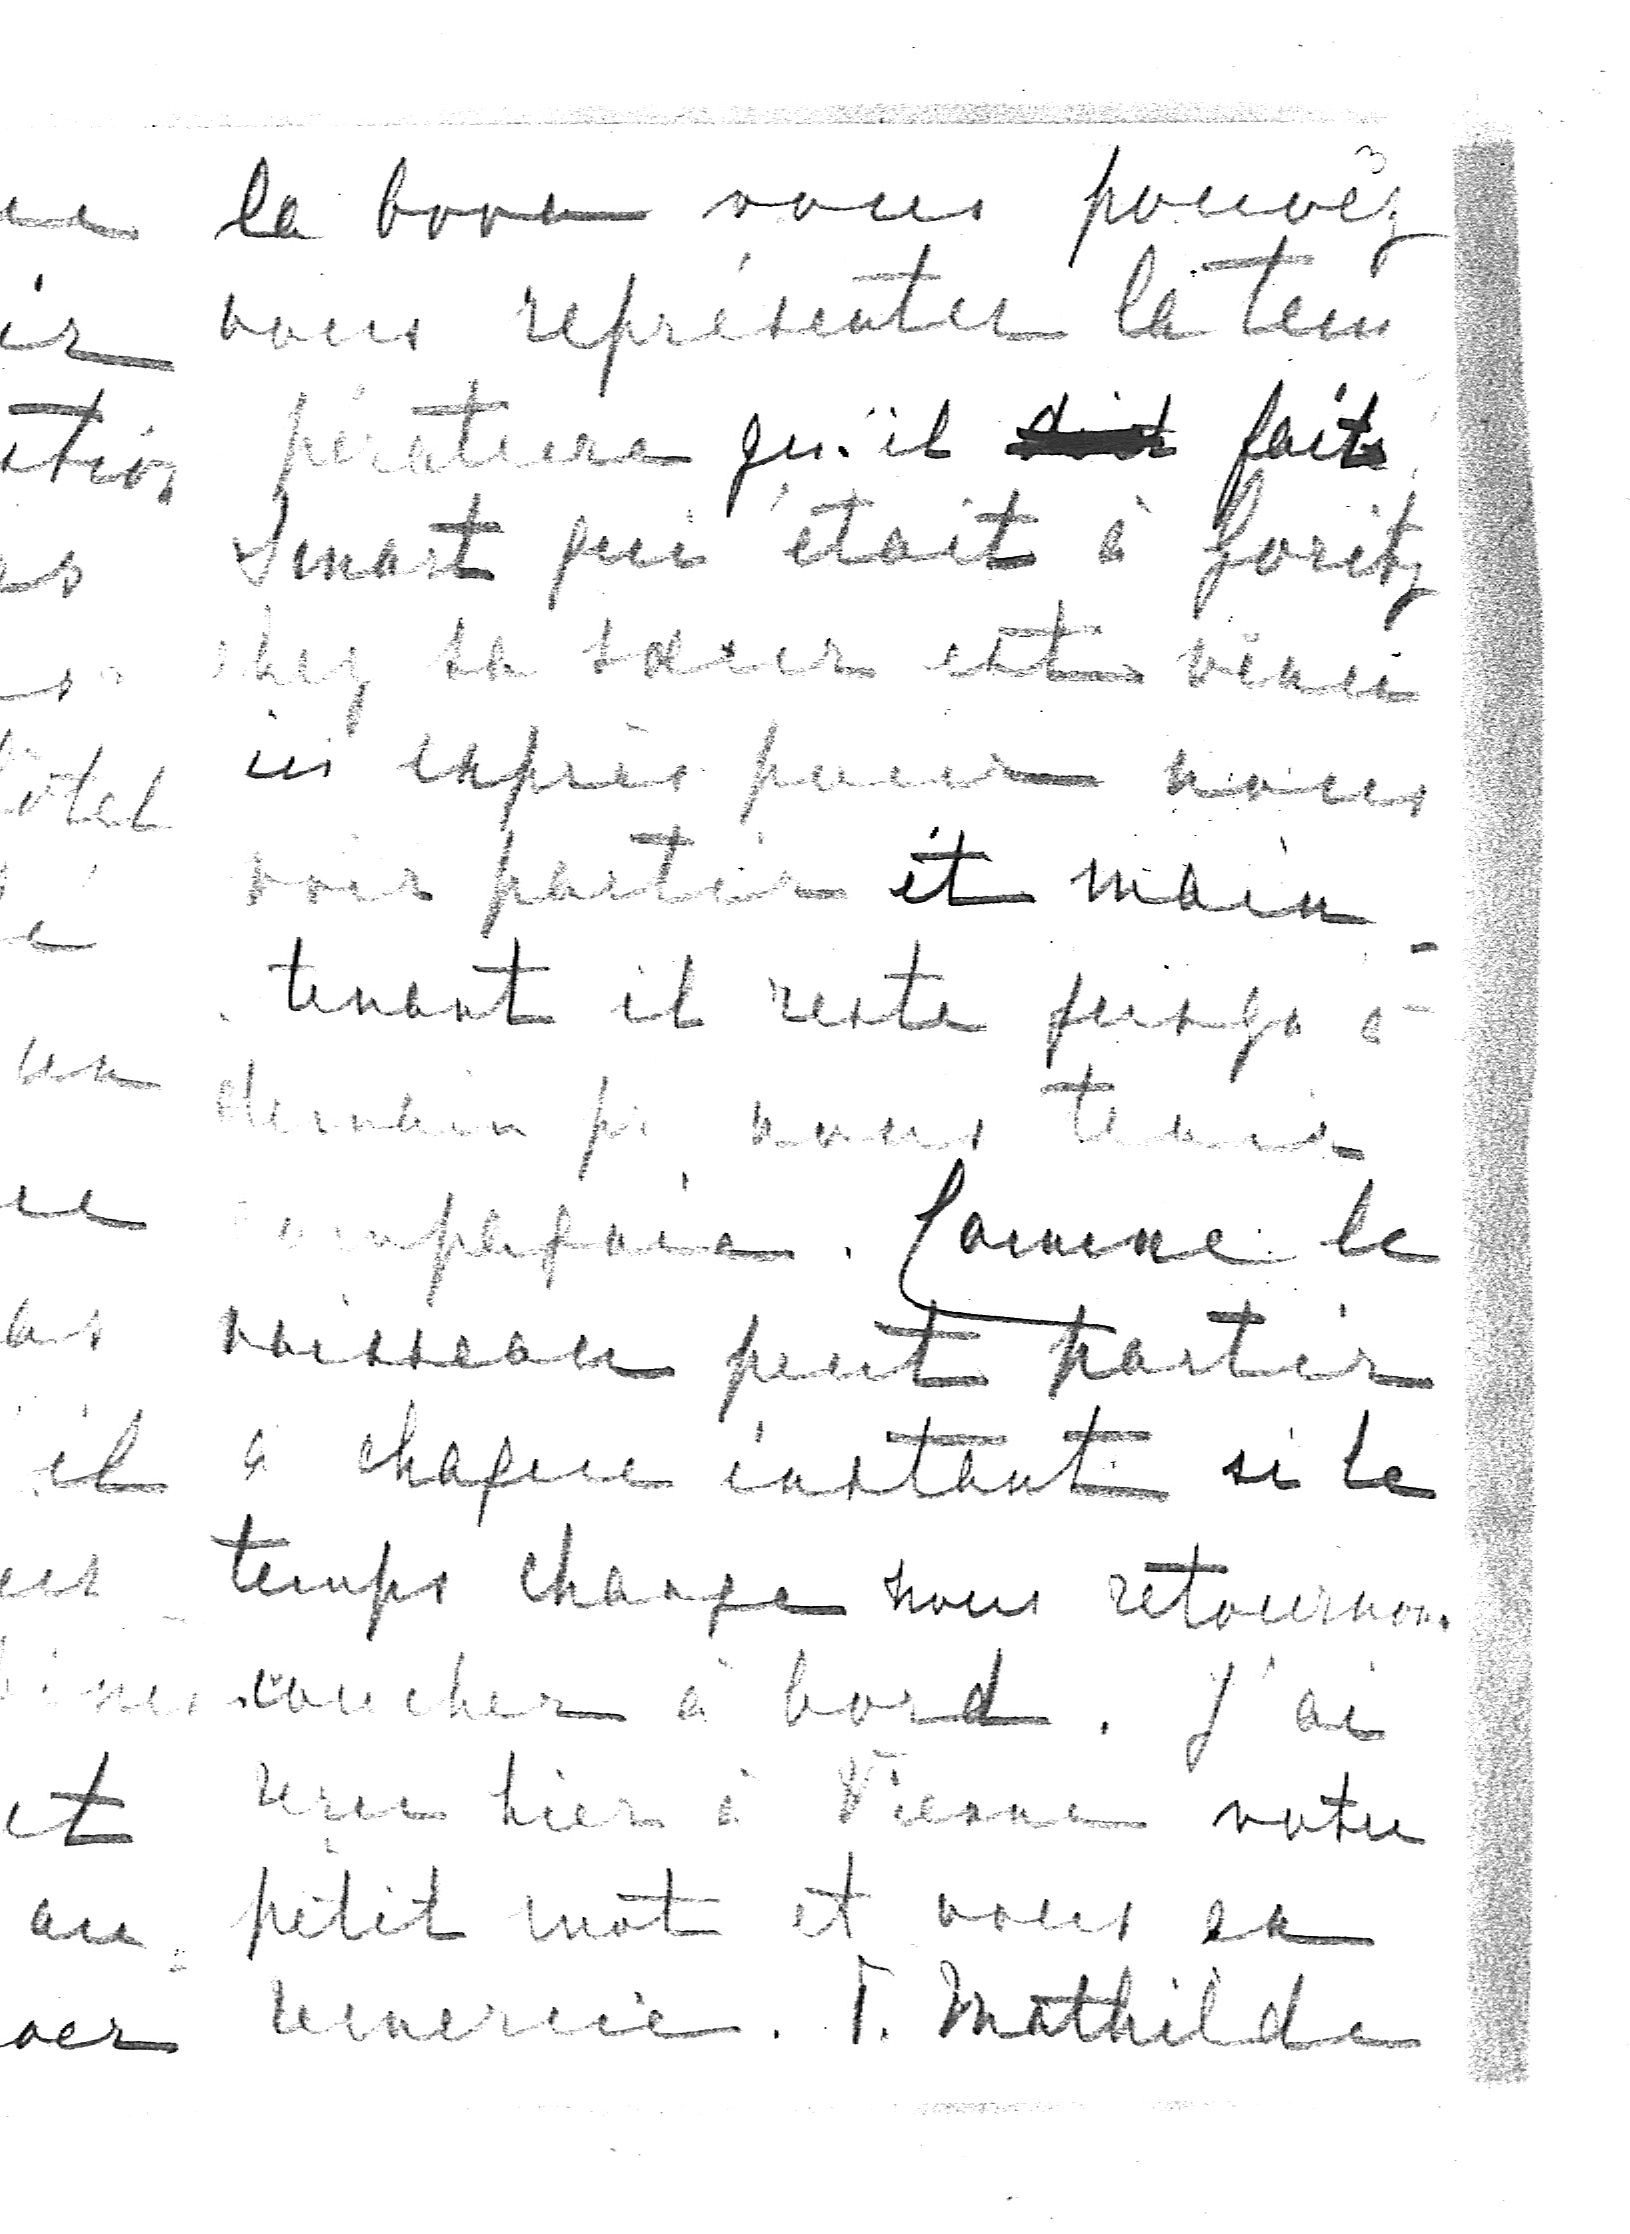 3
la bora vous pouvez
vous représenter la tem
pérature qu'il fait
Smart qui était à Goritz
chez sa sœur est venu
ici exprès pour nous
voir partir et main-
tenant il reste jusqu à
demain pr nous tenir
compagnie. Comme le
vaisseau peut partir
à chaque instant si le
temps change nous retournons
coucher à bord. J'ai
reçu hier à Vienne votre
petit mot et vous en
remercie. T. Mathilde
ir
ution
otel
un
il
et
au